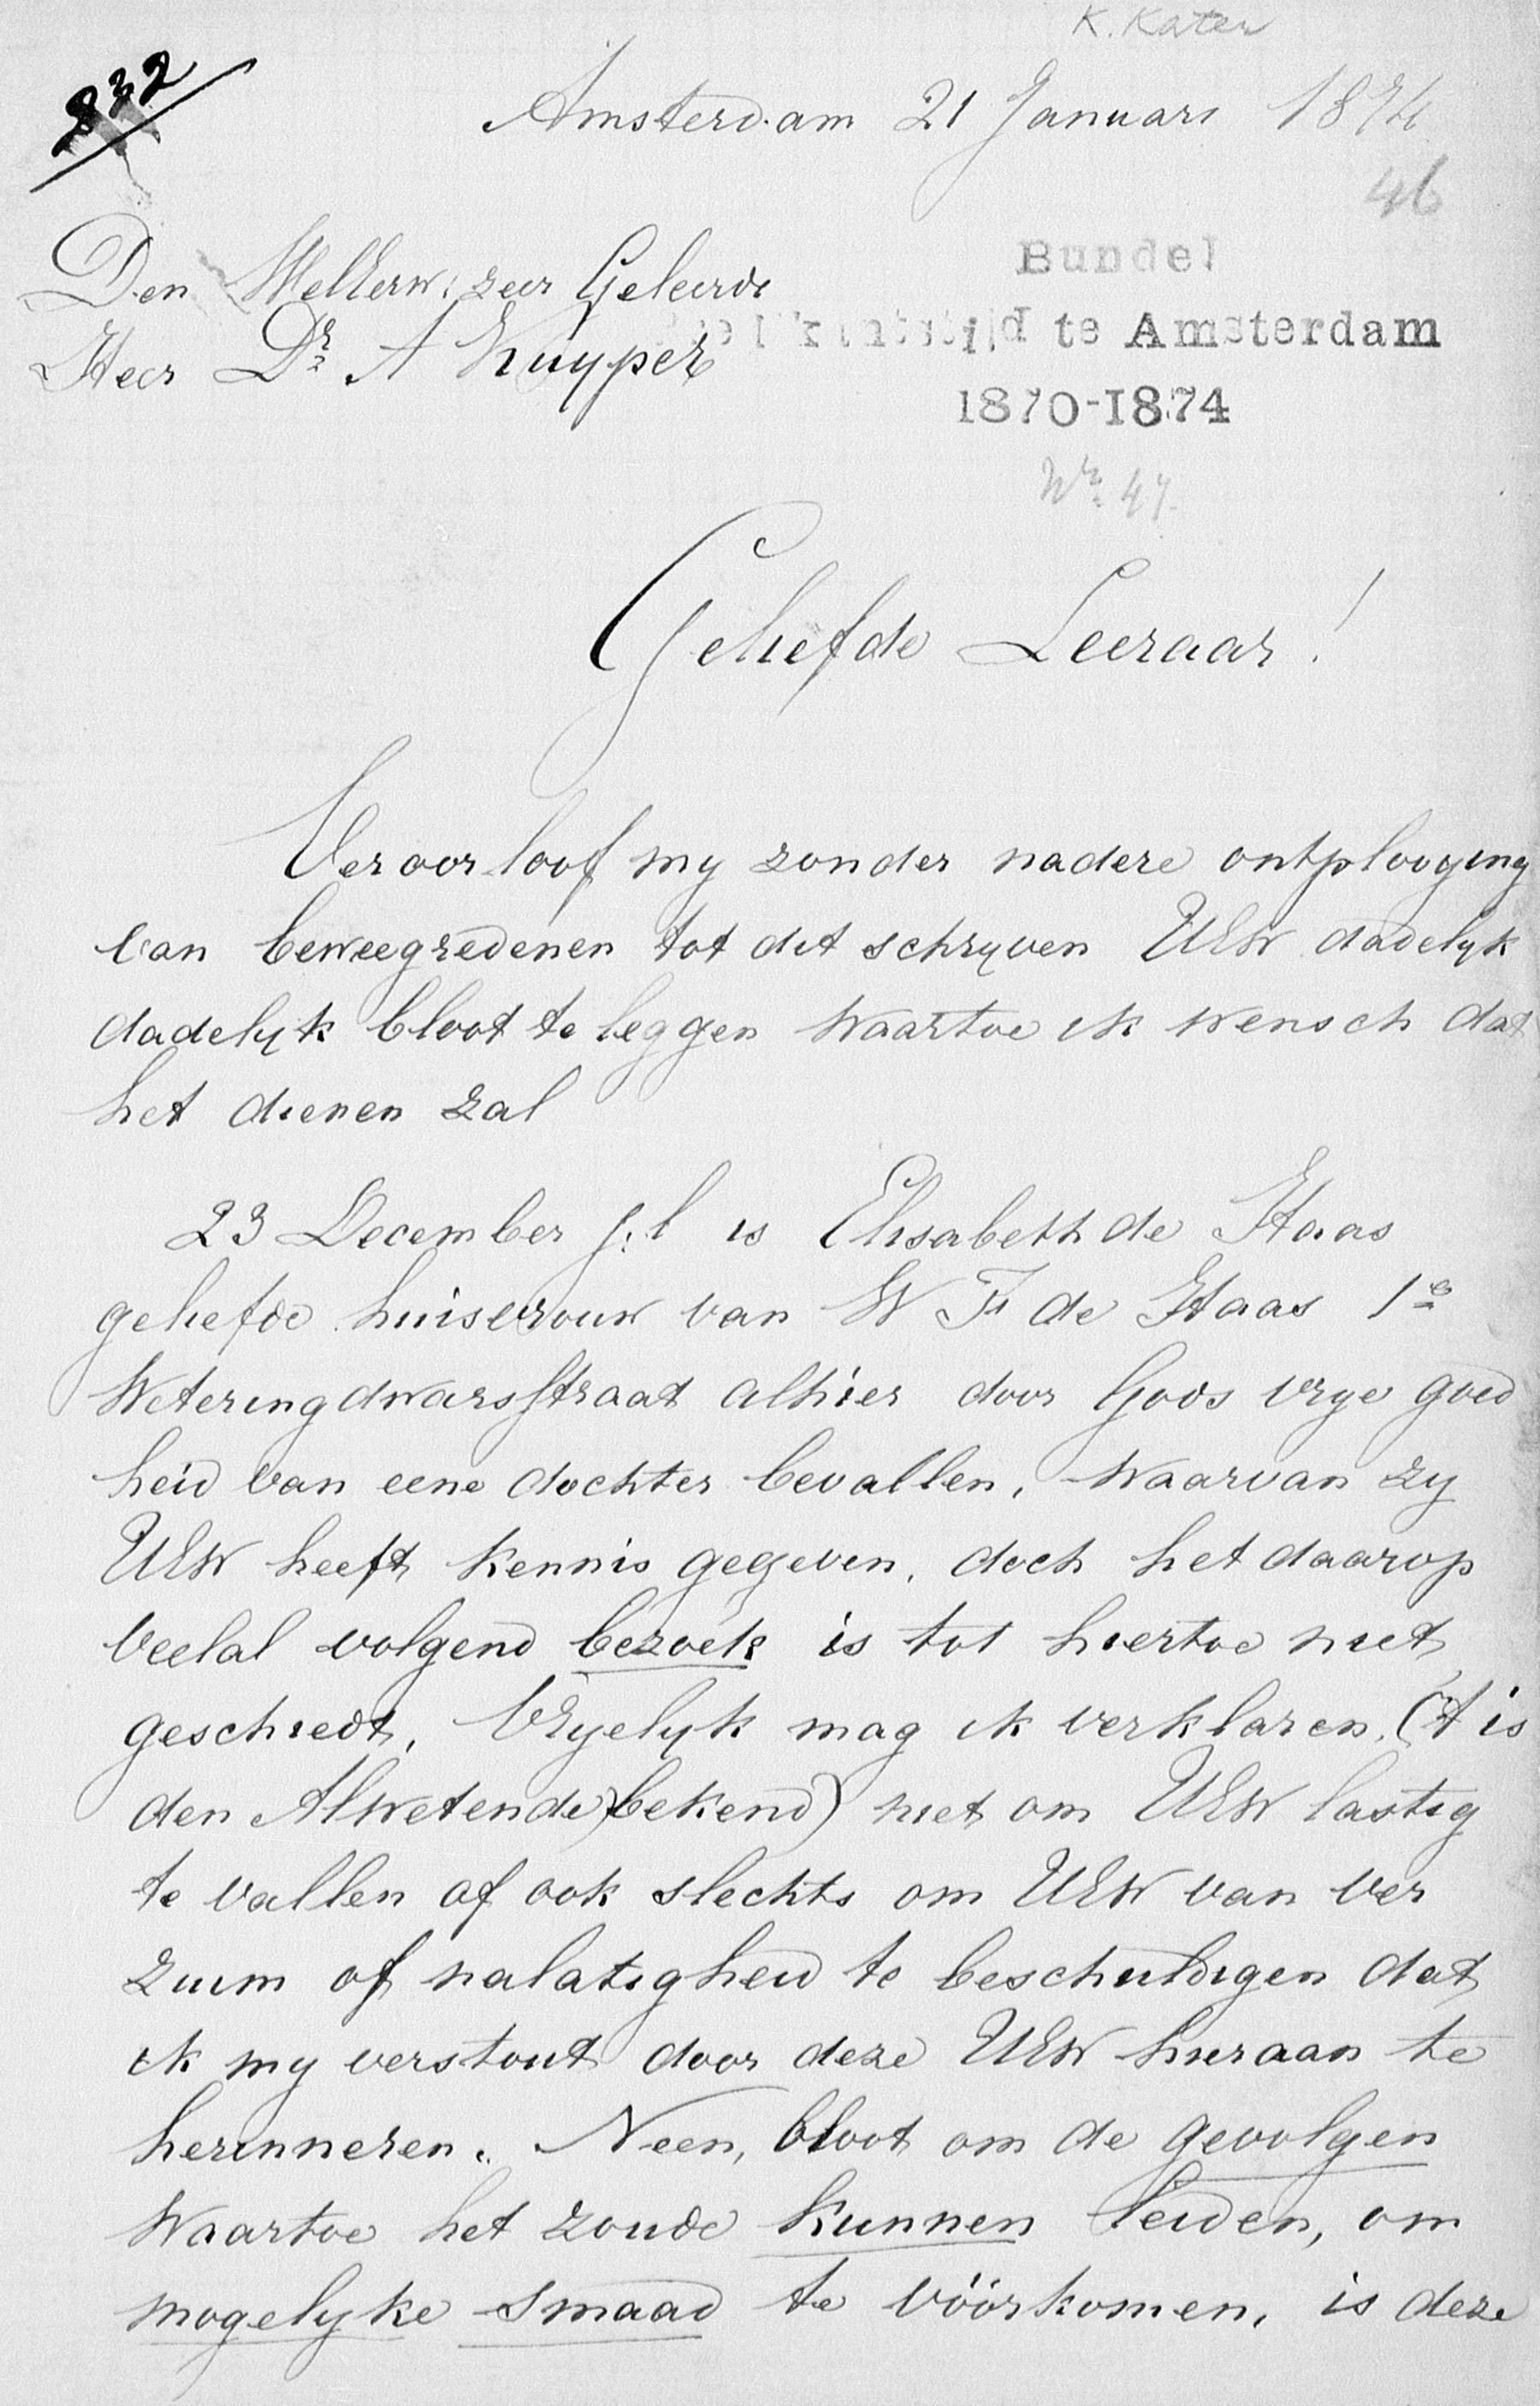 K. Kater
832
Amsterdam 21 Januari 1874
46
Den WelEerw: zeer Geleerde
Heer Dr A Kuyper
Bundel
te Amsterdam
1870-1874
Nr. 47.
Geliefde Leeraar!
Veroorloof my zonder nadere ontplooying
van beweegredenen tot dit schryven UEW dadelyk
dadelyk bloot te leggen waartoe ik wensch dat
het dienen zal
23 December j.l is Elisabeth de Haas
geliefde huisvrouw van W F de Haas 1e
Weteringdwarsstraat alhier door Gods vrye goed
heid van eene dochter bevallen, waarvan zy
UEW heeft kennis gegeven, doch het daarop
veelal volgend bezoek is tot hiertoe niet
geschiedt. Vryelyk mag ik verklaren, ('t is
den Alwetende) bekend) niet om UEW lastig
te vallen of ook slechts om UEW van ver
zuim of nalatigheid te beschuldigen dat
ik my verstout door deze UEW hieraan te
herinneren. Neen, bloot om de gevolgen
waartoe het zoude kunnen leiden, om
mogelyke smaad te vóórkomen, is deze